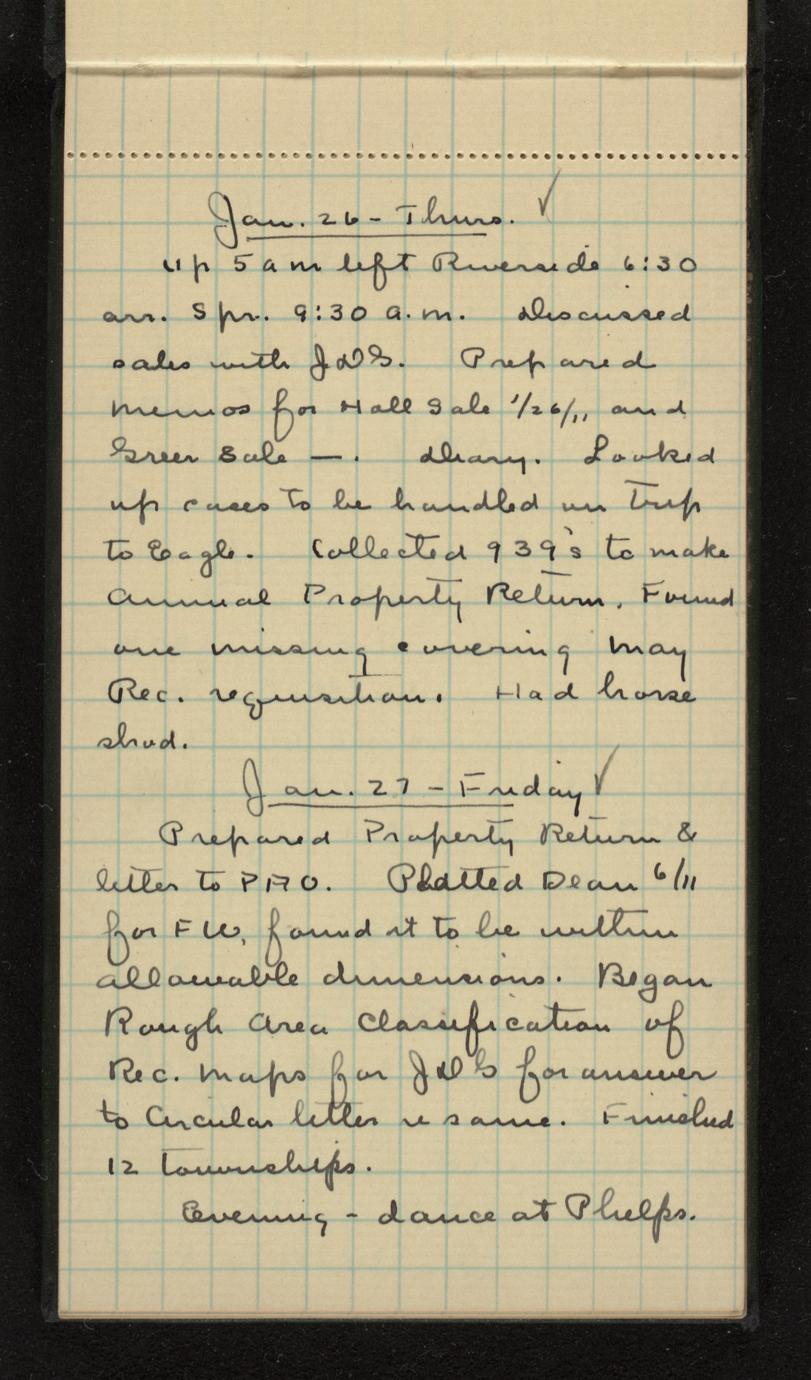 Jan. 26 - Thurs. ✓
Up 5 am left Riverside 6:30
arr. Spr. 9:30 a.m. Discussed
sales with JDG. Prepared
memos for Hall Sale 1/26/11 and
Greer Sale —. Diary. Looked
up cases to be handled on trip
to Eagle. Collected 939's to make
Annual Property Return. Found
one missing covering May
Rec. requisition. Had horse
shod.
Jan. 27 - Friday ✓
Prepared Property Return &
letter to PAO. Platted Dean 6/11
for FW, found it to be within
allowable dimensions. Began
Rough Area Classification of
Rec. Maps for JDG for answer
to Circular letter re same. Finished
12 townships.
Evening - dance at Phelps.